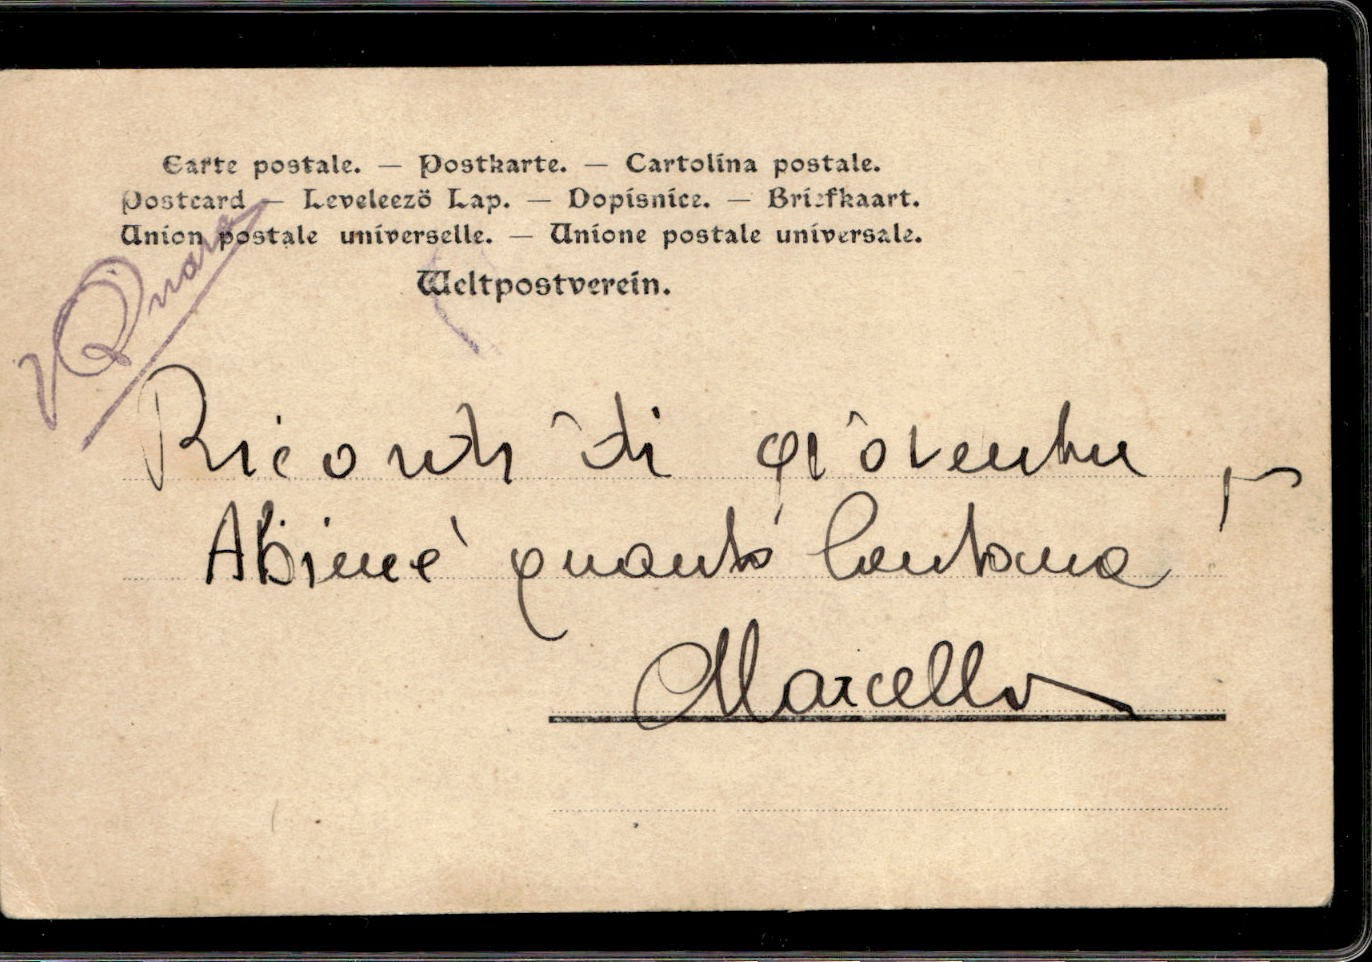 Carte postale. — Postkarte. — Cartolina postale.
Postcard — Levelezö Lap. — Dopisnice. — Briefkaart.
Union postale universelle. — Unione postale universale.
Weltpostverein.
Ricordi di gioventu
Ahimè quanto lontana
Marcello